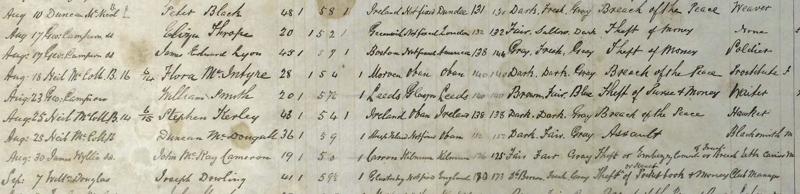 Aug 10 Duncan McNeil Peter Black 48 1 5 8 1 Ireland Not fixed Dundee 131 130 Dark. Fresh. Gray Breach of the Peace Weaver
Aug 17 Geo. Campion do. Eliza Thrope 20 1 5 2 1 Greenwich Not fixed London 132 132 Fair. Sallow. Dark Theft of Money None
Aug 17 Geo. Campion do. James Edward Lyon 45 1 5 9 1 Boston Not fixed America 138 146 Gray. Fresh. Gray Theft of Money Soldier
Aug 18 Neil McColl B. 16 Flora McIntyre 28 1 5 4 1 Morven Oban Oban 140 140 Dark. Dark. Gray Breach of the Peace Prostitute
Aug 23 Geo. Campion William Smith 20 1 5 7½ 1 Leeds Glasgow Leeds 140 140 Brown. Fair. Blue Theft of Purse & Money Writer
Aug 25 Neil McColl B. 14 Stephen Kerley 43 1 5 4 1 Ireland Oban Ireland 138 138 Dark. Dark. Gray Breach of the Peace Hawker
Aug 25 Neil McColl B Duncan McDougall 36 1 5 9 Not fixed Oban Dark. Fair. Gray Assault Blacksmith
Aug. 30 James Wyllie do. John McKay Cameron 19 1 5 0 1 Carron Kilmun Kilmun 125 Fair. Fair. Gray Theft or Embezzlement or Breach
Sep: 7 Willm Douglas Joseph Dowling 41 1 5 9½ 1 Not fixed England 173 173 Dk Brown. Fresh. Gray Theft of Pocketbook & Money Club Manager